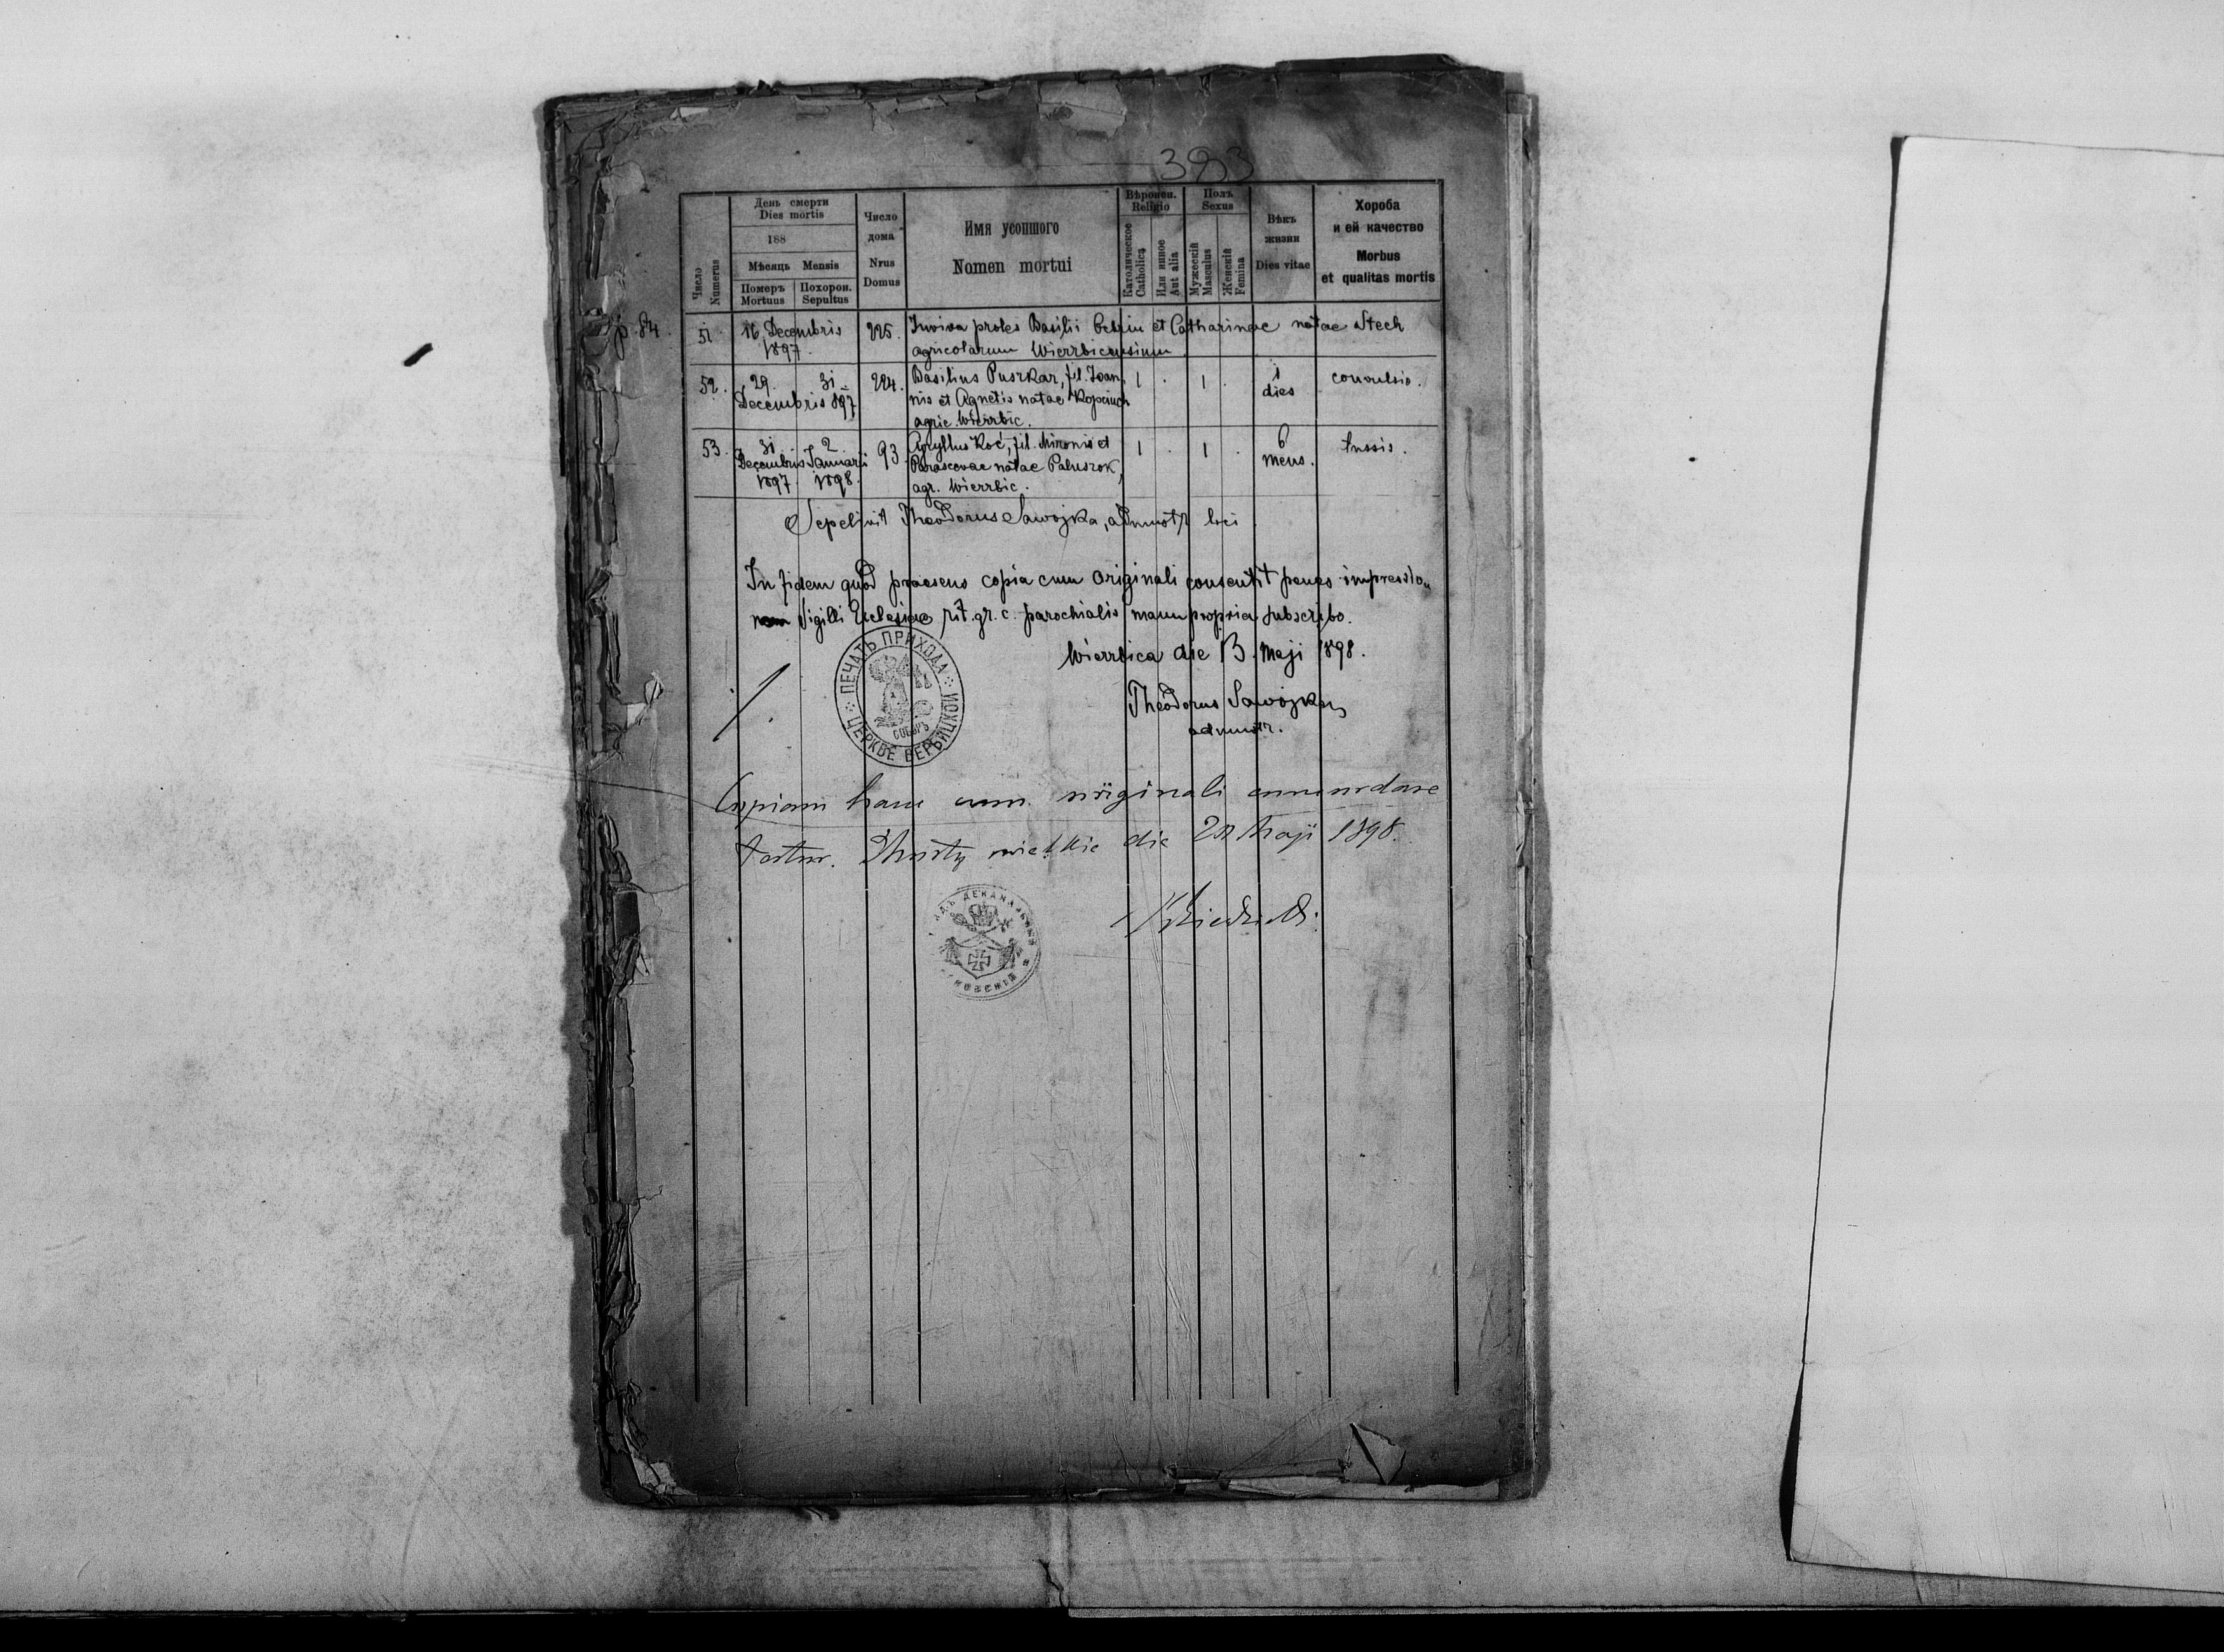 393
День смерти
Dies mortis
188
Мѣсяць Mensis
Померъ Похорон.
Mortuus Sepultus
Число
Numerus
Число
дома
Nrus
Domus
Имя усопшого
Nomen mortui
Вѣроисп.
Religio
Католическое
Catholica
Или инное
Aut alia
Полъ
Sexus
Мужескій
Masculus
Женскій
Femina
Вѣкъ
жизни
Dies vitae
Хороба
и ей качество
Morbus
et qualitas mortis
p. 84.
51 16 Decembris 225. Inviva proles Basilii et Catharinae natae Stech
1897. agricolarum Wierzbicensium
52. 29. 31. 224. Basilius Puszkar, fil. Joan 1 . 1 . 1 convulsio.
Decembris 897 nis et Agnetis natae dies
agric. Wierzbic.
53. 31 2 93 Cyryllus Koć, fil. Mironis et 1 . 1 . 6 tussis.
Decembris Januari Parascevae natae Paluszok, mens.
1897. 1898. agr. Wierzbic.
Sepelivit Theodorus Sawojka, admnstr loci
In fidem quod praesens copia cum originali consentit penes impressio„
nem Sigilli Ecclesiae rit. gr. c. parochialis manu propria subscribo.
Wierzbica die 13. Maji 1898.
Theodorus Sawojka,
admnstr.
ПЕЧАТЬ ПРИХОДА
ЦЕРКВЕ ВЕРБИЦКОИ
СОБОРЪ
Copiam hanc cum originali concordare
testor. wielkie die Maji 1898.
ДЕКАНАЛЬНЫЙ